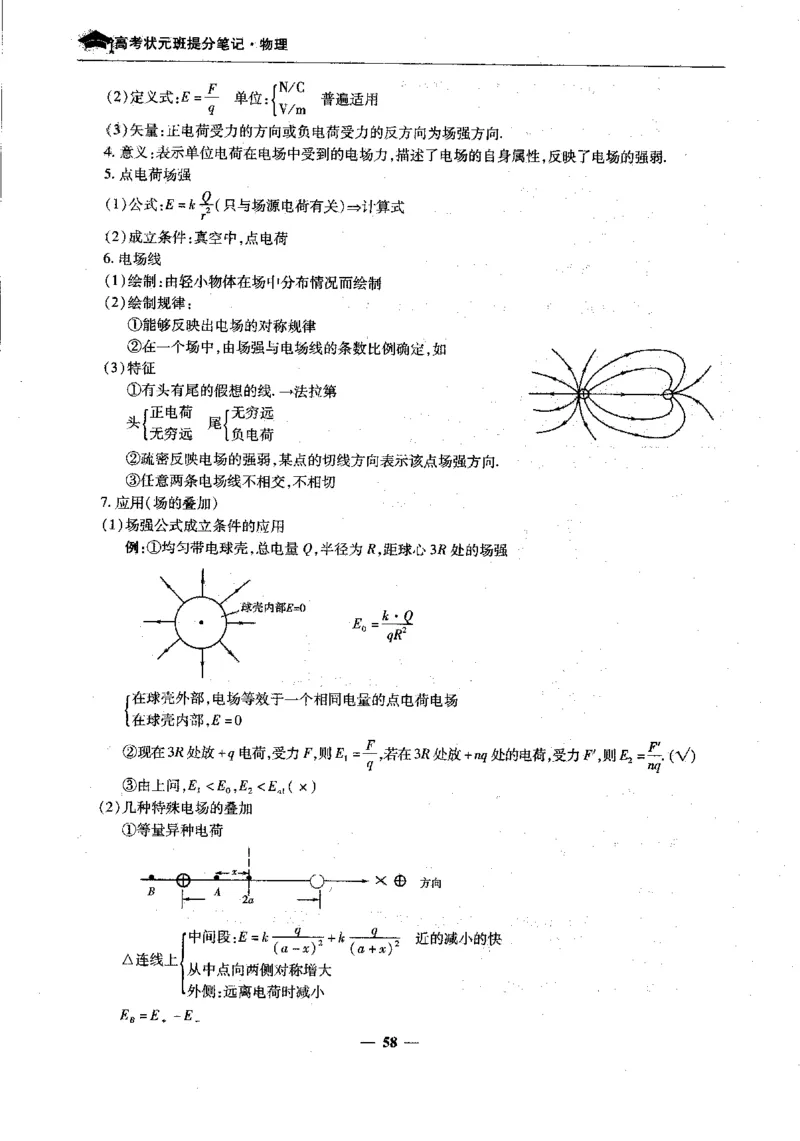 高考状元班提分笔记·物理
(2)定义式:E=F/q 单位:{N/C V/m 普遍适用
(3)矢量:正电荷受力的方向或负电荷受力的反方向为场强方向.
4.意义:表示单位电荷在电场中受到的电场力,描述了电场的自身属性,反映了电场的强弱.
5.点电荷场强
(1)公式:E=k Q/r²(只与场源电荷有关)⇒计算式
(2)成立条件:真空中,点电荷
6.电场线
(1)绘制:由轻小物体在场中分布情况而绘制
(2)绘制规律:
①能够反映出电场的对称规律
②在一个场中,由场强与电场线的条数比例确定,如
(3)特征
①有头有尾的假想的线.→法拉第
头{正电荷 无穷远 尾{无穷远 负电荷
②疏密反映电场的强弱,某点的切线方向表示该点场强方向.
③任意两条电场线不相交,不相切
7.应用(场的叠加)
(1)场强公式成立条件的应用
例:①均匀带电球壳,总电量Q,半径为R,距球心3R处的场强
球壳内部E=0
E₀=k·Q/qR²
{在球壳外部,电场等效于一个相同电量的点电荷电场
在球壳内部,E=0
②现在3R处放+q电荷,受力F,则E₁=F/q,若在3R处放+nq处的电荷,受力F′,则E₂=F′/nq.(√)
③由上问,E₁<E₀,E₂<E (×)
(2)几种特殊电场的叠加
①等量异种电荷
x
B A 2a × ⊕ 方向
△连线上{中间段:E=k q/(a-x)²+k q/(a+x)² 近的减小的快
从中点向两侧对称增大
外侧:远离电荷时减小
E_B=E₊-E₋
— 58 —